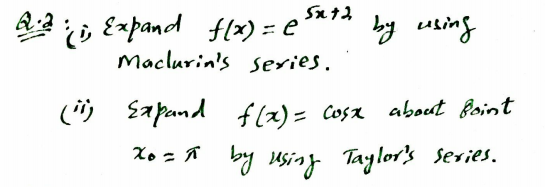 Q.2 : (i) Expand f(x) = e^{5x+2} by using
Maclurin's series.
(ii) Expand f(x) = cosx about Point
x₀ = π by using Taylor's series.